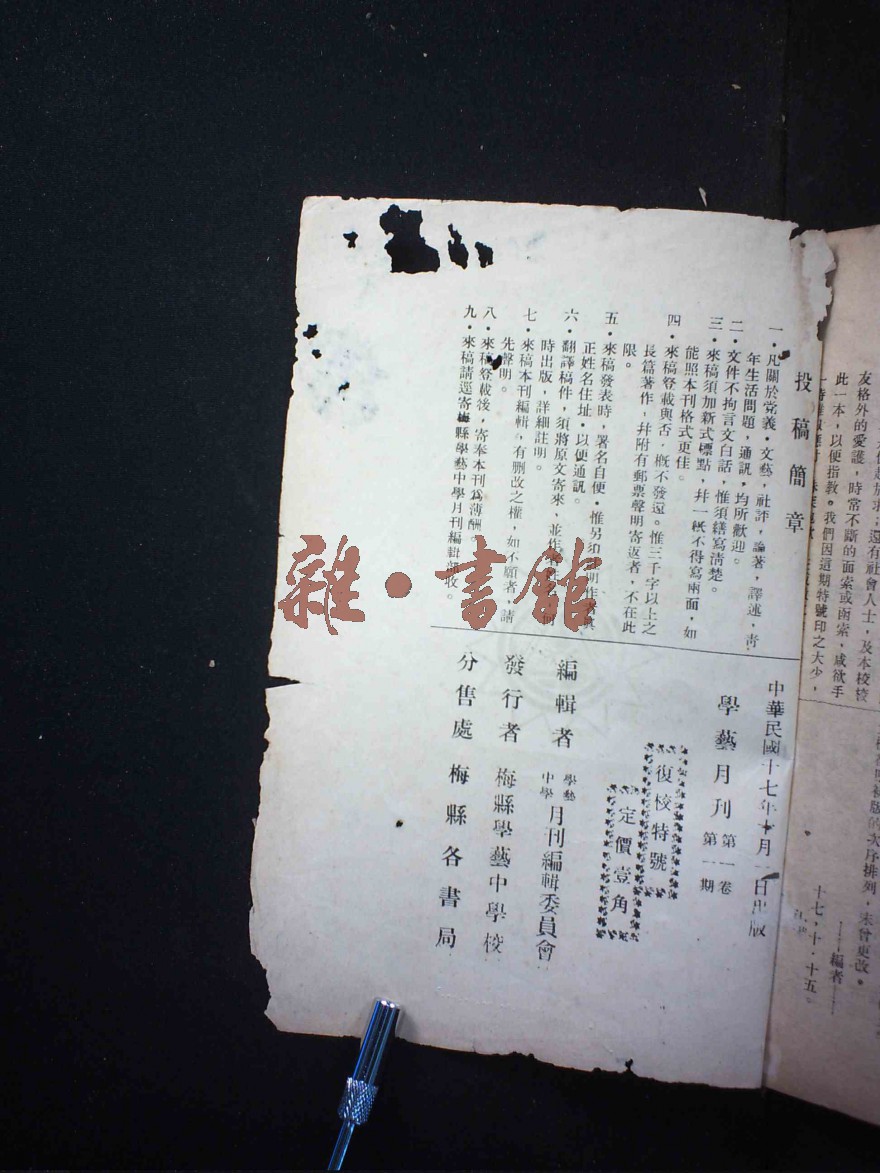 友格外的愛護，時常不斷的面索或函索，咸欲手
此一本，以便指教。我們因這期特號印之大少，
次序排列，未曾更改。
編者
十七，十，十五
投稿簡章
一．凡關於党義．文藝，社評，論著，譯述，靑
年生活問題，通訊，均所歡迎。
二．文件不拘言文白話，惟須繕寫淸楚。
三．來稿須加新式標點，幷一紙不得寫兩面，如
能照本刊格式更佳。
四．來稿發載與否，槪不發還。惟三千字以上之
長篇著作，幷附有郵票聲明寄返者，不在此
限。
五．來稿發表時，署名自便．惟另須
正姓名住址．以便通訊。
六．翻譯稿件，須將原文寄來，並
時出版，詳細註明。
七．來稿本刊編輯，有删改之權，如不願者，請
先聲明。
八．來稿發載後，寄奉本刊爲薄酬。
九．來稿請逕寄梅縣學藝中學月刊編輯部收。
中華民國十七年十月一日出版
學藝月刊 第一卷 第一期
復校特號
定價壹角
編輯者 學藝中學月刊編輯委員會
發行者 梅縣學藝中學校
分售處 梅縣各書局
雜·書館